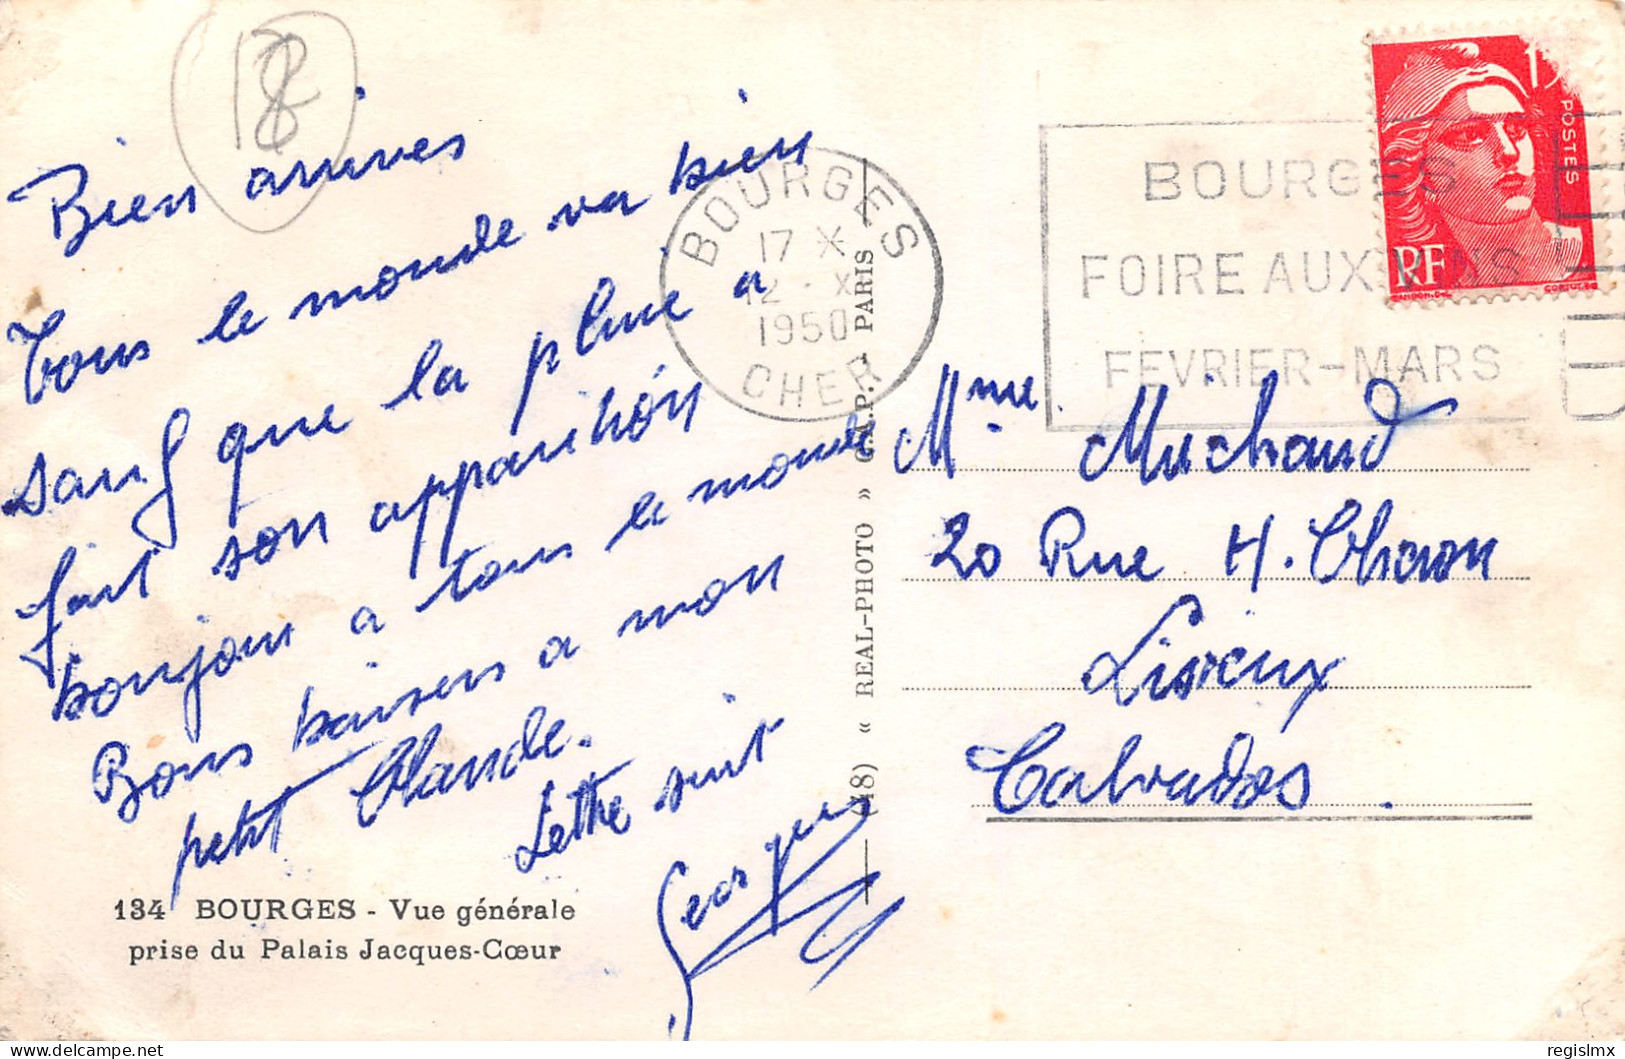 18
Bien arrivés
Tous le monde va bien
sauf que la pluie a
fait son apparition
bonjour a tous le monde
Bons baisers a mon
petit Claude.
Lettre suit
Georges
134 BOURGES - Vue générale
prise du Palais Jacques-Cœur
(48) « REAL-PHOTO » C.A.P. - PARIS
BOURGES
17 X
12 · X
1950
CHER
BOURGES
FOIRE AUX VINS
FEVRIER-MARS
POSTES
RF
GANDON.DEL
CORTOT.SC
Mme Michaud
20 Rue H. Chéron
Lisieux
Calvados.
regislmx